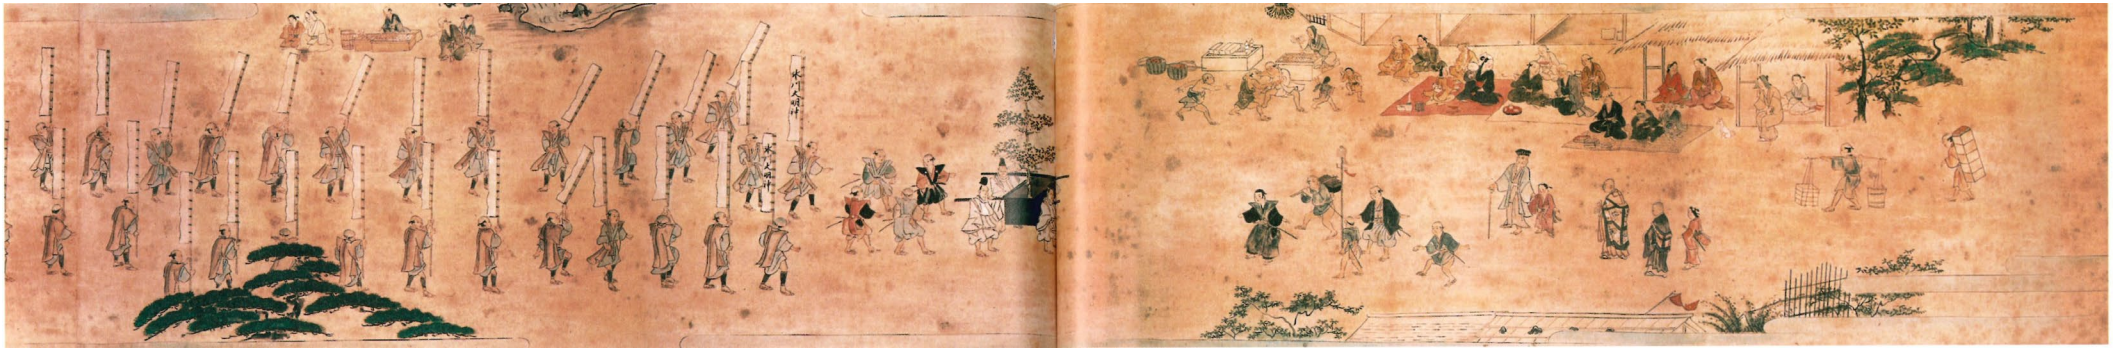 氷川大明神
氷川大明神